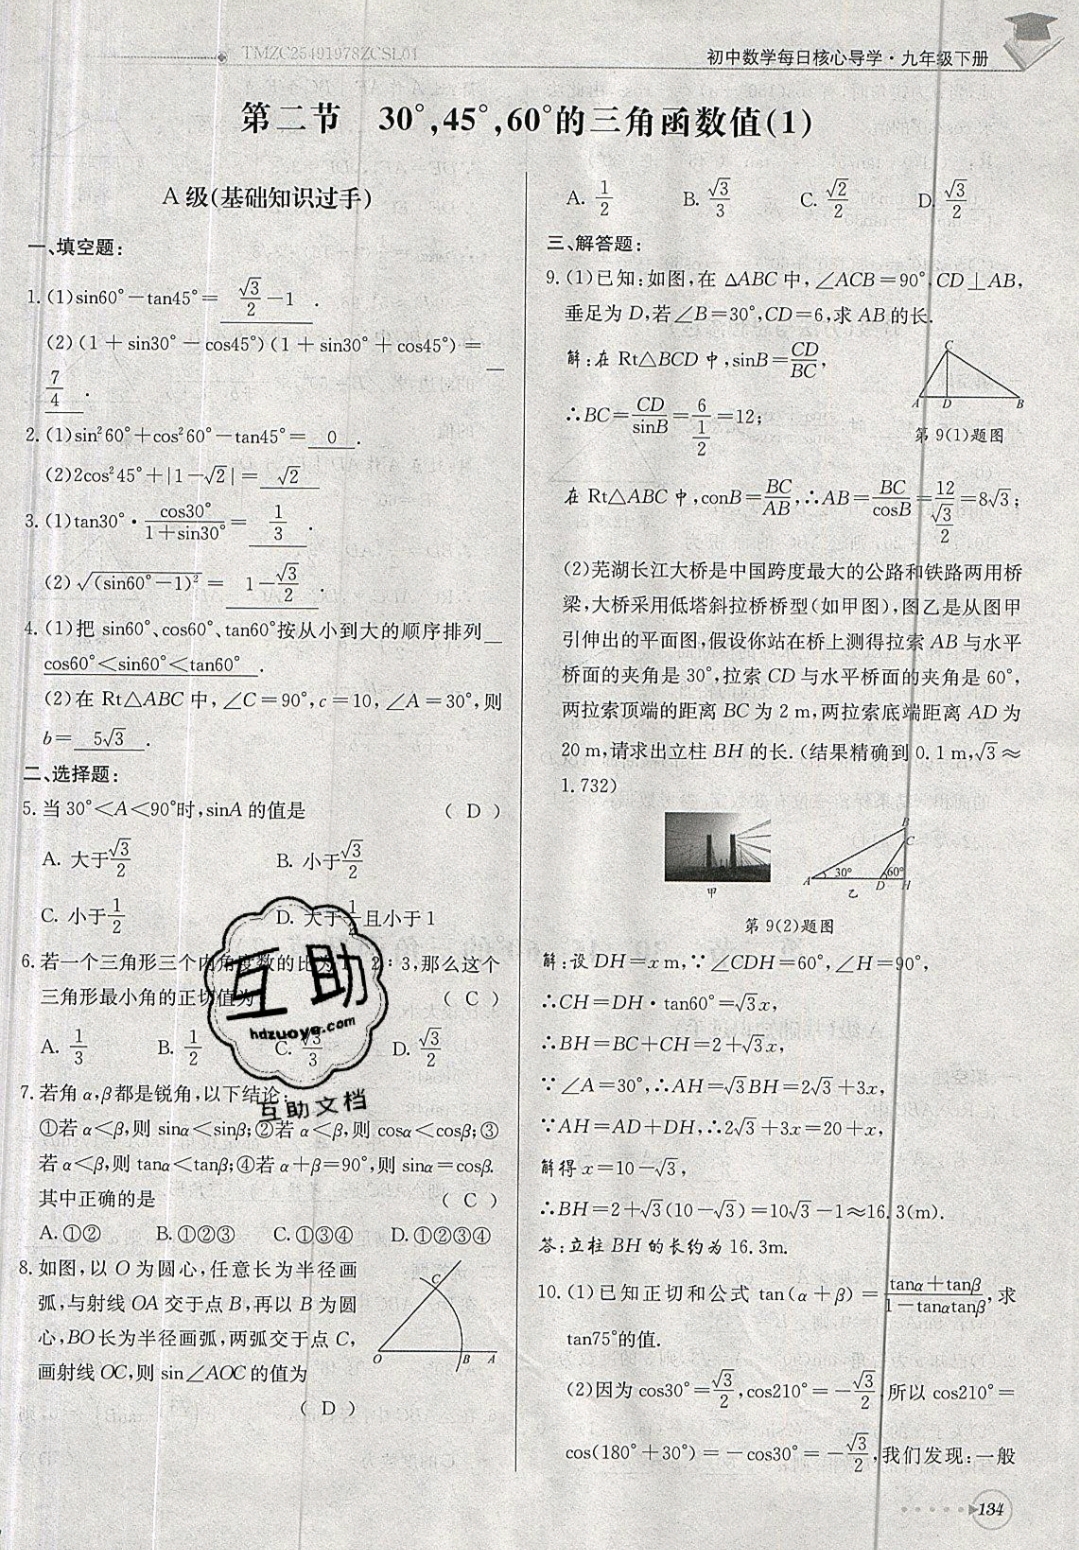 TMZC25491978ZCSL01
初中数学每日核心导学·九年级下册
第二节 30°,45°,60°的三角函数值(1)
A级(基础知识过手)
一、填空题:
1.(1)sin60°-tan45°= √3/2-1 .
(2)(1+sin30°-cos45°)(1+sin30°+cos45°)=
7/4 .
2.(1)sin²60°+cos²60°-tan45°= 0 .
(2)2cos²45°+|1-√2|= √2
3.(1)tan30°·cos30°/(1+sin30°)= 1/3 .
(2)√(sin60°-1)²= 1-√3/2 .
4.(1)把 sin60°、cos60°、tan60°按从小到大的顺序排列
cos60°<sin60°<tan60° .
(2)在 Rt△ABC 中,∠C=90°,c=10,∠A=30°,则
b= 5√3 .
二、选择题:
5.当30°<A<90°时,sinA 的值是 ( D )
A. 大于√3/2 B. 小于√3/2
C. 小于1/2 D. 大于1/2且小于1
6.若一个三角形三个内角度数的比为1:2:3,那么这个
三角形最小角的正切值为 ( C )
A. 1/3 B. 1/2 C. √3/3 D. √3/2
7.若角 α,β都是锐角,以下结论:
①若 α<β,则 sinα<sinβ;②若 α<β,则 cosα<cosβ;③
若 α<β,则 tanα<tanβ;④若 α+β=90°,则 sinα=cosβ.
其中正确的是 ( C )
A.①② B.①②③ C.①③④ D.①②③④
8.如图,以 O 为圆心,任意长为半径画
弧,与射线 OA 交于点 B,再以 B 为圆
心,BO长为半径画弧,两弧交于点 C,
画射线 OC,则 sin∠AOC 的值为
( D )
C
O B A
互助
hdzuoye.com
互助文档
A. 1/2 B. √3/3 C. √2/2 D. √3/2
三、解答题:
9.(1)已知:如图,在 △ABC 中,∠ACB=90°,CD⊥AB,
垂足为 D,若∠B=30°,CD=6,求 AB 的长.
解:在 Rt△BCD 中,sinB=CD/BC,
∴BC=CD/sinB=6/(1/2)=12;
C
A D B
第 9(1)题图
在 Rt△ABC 中,conB=BC/AB,∴AB=BC/cosB=12/(√3/2)=8√3;
(2)芜湖长江大桥是中国跨度最大的公路和铁路两用桥
梁,大桥采用低塔斜拉桥桥型(如甲图),图乙是从图甲
引伸出的平面图,假设你站在桥上测得拉索 AB 与水平
桥面的夹角是 30°,拉索 CD 与水平桥面的夹角是 60°,
两拉索顶端的距离 BC 为 2 m,两拉索底端距离 AD 为
20 m,请求出立柱 BH 的长.(结果精确到 0.1 m,√3≈
1.732)
B
C
A 30° 60° D H
甲 乙
第 9(2)题图
解:设 DH=x m,∵∠CDH=60°,∠H=90°,
∴CH=DH·tan60°=√3x,
∴BH=BC+CH=2+√3x,
∵∠A=30°,∴AH=√3BH=2√3+3x,
∵AH=AD+DH,∴2√3+3x=20+x,
解得 x=10-√3,
∴BH=2+√3(10-√3)=10√3-1≈16.3(m).
答:立柱 BH 的长约为 16.3m.
10.(1)已知正切和公式 tan(α+β)=(tanα+tanβ)/(1-tanαtanβ),求
tan75°的值.
(2)因为 cos30°=√3/2,cos210°=-√3/2,所以 cos210°=
cos(180°+30°)=-cos30°=-√3/2,我们发现:一般
134